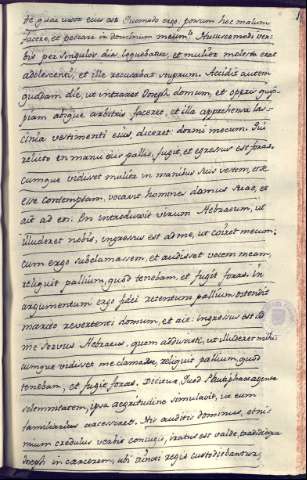 te quae uxor eius es? Quomodo ergo possum hoc malum
facere, et peccare in Dominum meum? Huiuscemodi ver-
bis per singulos dies loquebatur, et mulier molesta erat
adolescenti, et ille recusabat stuprum. Accidit autem
quadam die, ut intraret Joseph domum, et operis quip-
piam absque arbitris faceret, et illa apprehensa la-
cinia vestimenti eius, diceret: dormi mecum. Qui
relicto in manu eius pallio, fugit, et egressus est foras.
cumque vidisset mulier in manibus suis vestem, et se
esse contemptam, vocavit homines domus suae, et
ait ad eos: En introduxit virum Hebraeum, ut
illuderet nobis, ingressus est ad me, ut coiret mecum;
cum ergo subclamassem, et audisset vocem meam,
reliquit pallium, quod tenebam, et fugit foras. In
argumentum ergo fidei retentum pallium ostendit
marito revertenti domum, et ait: ingressus est ad
me servus Hebraeus, quem adduxisti, ut illuderet mihi:
cumque vidisset me clamare, reliquit pallium, quod
tenebam, et fugit foras.
solemnitatem, ipsa aegritudine simulavit, ut cum
familiaritus His auditis dominus, et ni-
mium credulus verbis coniugis, iratus est valde, traditque
Joseph in carcerem, ubi vincti regis custodiebantur